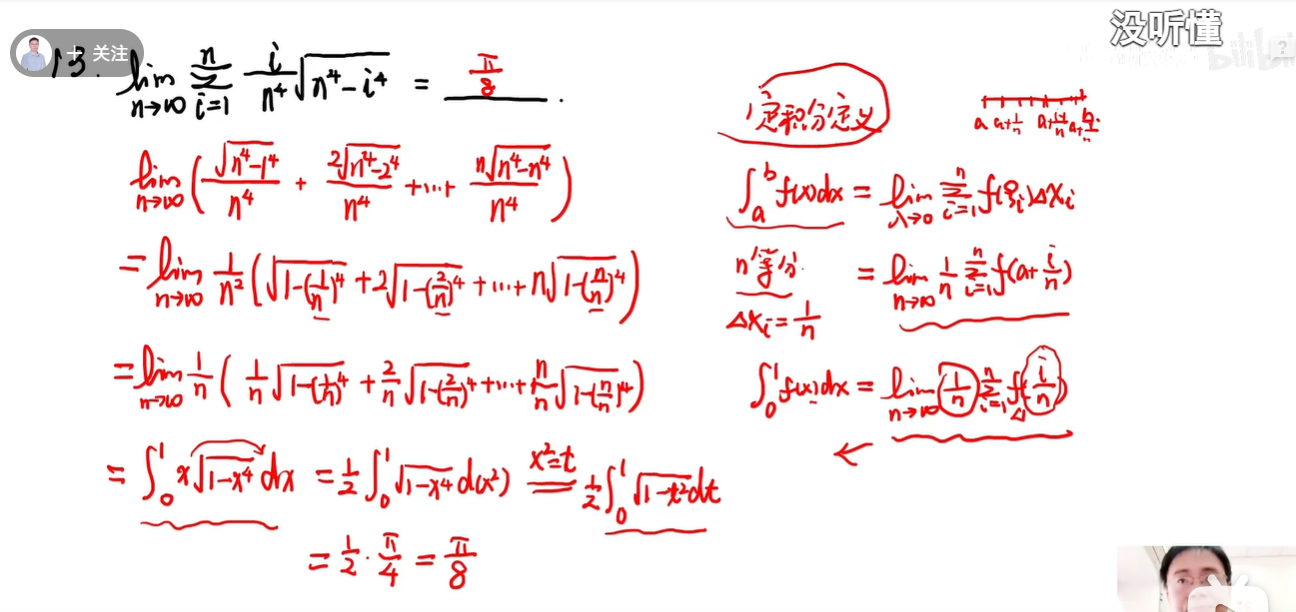 没听懂
+ 关注
bilibili
13. lim_{n→∞} Σ_{i=1}^{n} i/n⁴ √(n⁴-i⁴) = π/8 .
lim_{n→∞} ( √(n⁴-1⁴)/n⁴ + 2√(n⁴-2⁴)/n⁴ + ... + n√(n⁴-n⁴)/n⁴ )
= lim_{n→∞} 1/n² ( √(1-(1/n)⁴) + 2√(1-(2/n)⁴) + ... + n√(1-(n/n)⁴) )
= lim_{n→∞} 1/n ( 1/n √(1-(1/n)⁴) + 2/n √(1-(2/n)⁴) + ... + n/n √(1-(n/n)⁴) )
= ∫₀¹ x√(1-x⁴) dx = 1/2 ∫₀¹ √(1-x⁴) d(x²) x²=t 1/2 ∫₀¹ √(1-t²) dt
= 1/2 · π/4 = π/8
定积分定义
a a+1/n
∫_a^b f(x)dx = lim_{λ→0} Σ_{i=1}^{n} f(ξᵢ)Δxᵢ
n等分 = lim_{n→∞} 1/n Σ_{i=1}^{n} f(a+i/n)
Δxᵢ = 1/n
∫₀¹ f(x)dx = lim_{n→∞} 1/n Σ_{i=1}^{n} f(i/n)
←